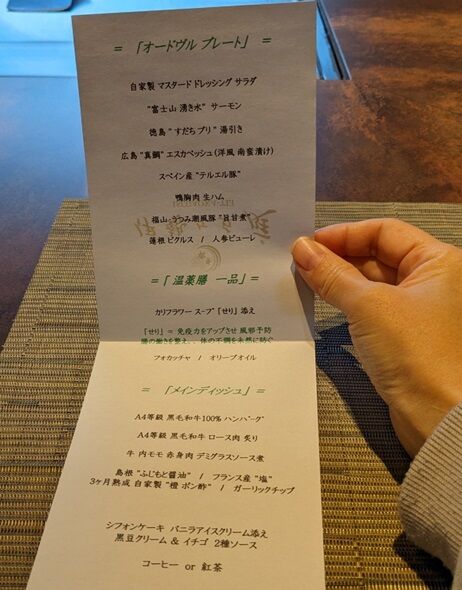 = 「オードヴル プレート」 =
自家製 マスタード ドレッシング サラダ
"富士山 湧き水" サーモン
徳島 "すだち ブリ" 湯引き
広島 "真鯛" エスカベッシュ(洋風 南蛮漬け)
スペイン産 "テルエル豚"
鴨胸肉 生ハム
福山・うつみ潮風豚 "旨甘煮"
蓮根 ピクルス / 人参ピューレ
=「 温薬膳 一品」=
カリフラワー スープ 「せり」 添え
「せり」= 免疫力をアップさせ 風邪予防
腸の働きを整え、、体の不調を未然に防ぐ
フォカッチャ / オリーブオイル
= 「メインディッシュ」 =
A4等級 黒毛和牛100% ハンバーグ
A4等級 黒毛和牛 ロース肉 炙り
牛 内モモ 赤身肉 デミグラスソース煮
島根 "ふじもと醤油" / フランス産 "塩"
3ヶ月熟成 自家製 "橙 ポン酢" / ガーリックチップ
シフォンケーキ バニラアイスクリーム添え
黒豆クリーム & イチゴ 2種ソース
コーヒー or 紅茶